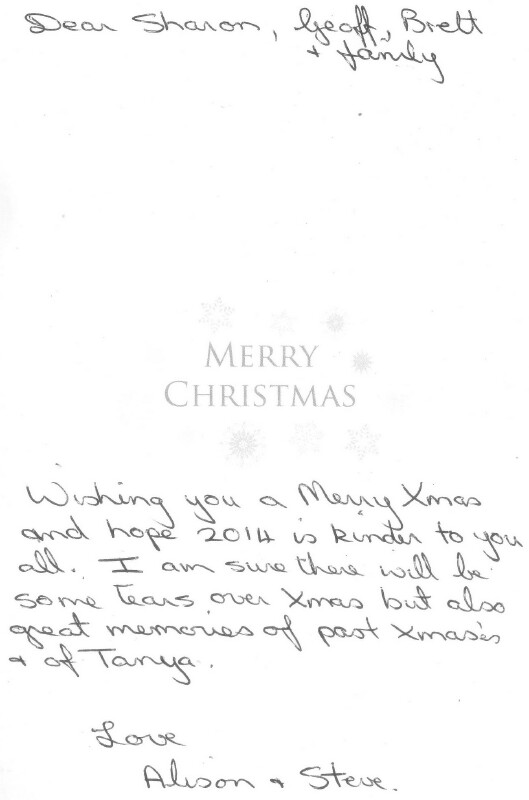 Dear Sharon, Geoff, Brett
+ family
MERRY
CHRISTMAS
Wishing you a Merry Xmas
and hope 2014 is kinder to you
all. I am sure there will be
some tears over Xmas but also
great memories of past Xmas's
+ of Tanya.
Love
Alison + Steve.